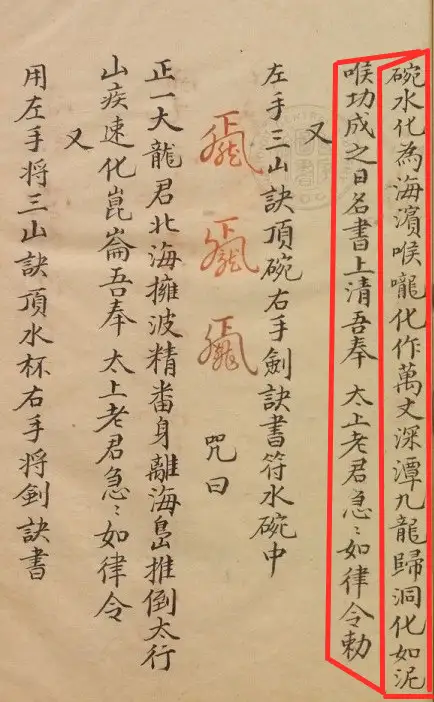 碗水化為海濱喉嚨化作萬丈深潭九龍歸洞化如泥
喉功成之日名書上清吾奉 太上老君急〻如律令勅
又
左手三山訣頂碗右手劍訣書符水碗中
咒曰
正一大龍君北海擁波精畨身離海島推倒太行
山疾速化崑崙吾奉 太上老君急〻如律令
又
用左手将三山訣頂水杯右手将劍訣書